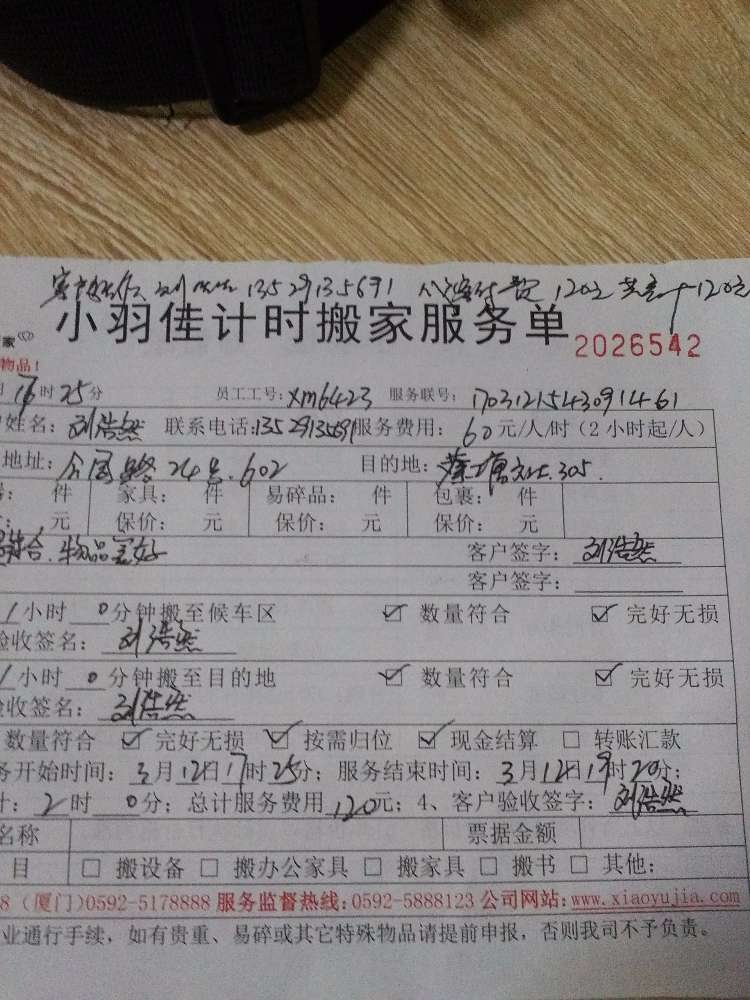 13529135691 120元 120元
小羽佳计时搬家服务单 2026542
家
物品！
时25分 员工工号：xm6423 服务联号：17031215430914461
姓名：刘浩然 联系电话：13529135691 服务费用：60元/人/时（2小时起/人）
地址：24号.602 目的地：305.
件 家具： 件 易碎品： 件 包裹： 件
元 保价： 元 保价： 元 保价： 元
符合、物品完好 客户签字：刘浩然
客户签字：
1小时 0分钟搬至候车区 ☑ 数量符合 ☑ 完好无损
验收签名：刘浩然
1小时 0分钟搬至目的地 ☑ 数量符合 ☑ 完好无损
收签名：刘浩然
数量符合 ☑ 完好无损 ☑ 按需归位 ☑ 现金结算 □ 转账汇款
务开始时间：3月12日17时25分；服务结束时间：3月12日19时20分；
计：2时 0分；总计服务费用120元；4、客户验收签字：刘浩然
名称 票据金额
目 □ 搬设备 □ 搬办公家具 □ 搬家具 □ 搬书 □ 其他：
8（厦门）0592-5178888 服务监督热线：0592-5888123 公司网站：www.xiaoyujia.com
业通行手续，如有贵重、易碎或其它特殊物品请提前申报，否则我司不予负责。